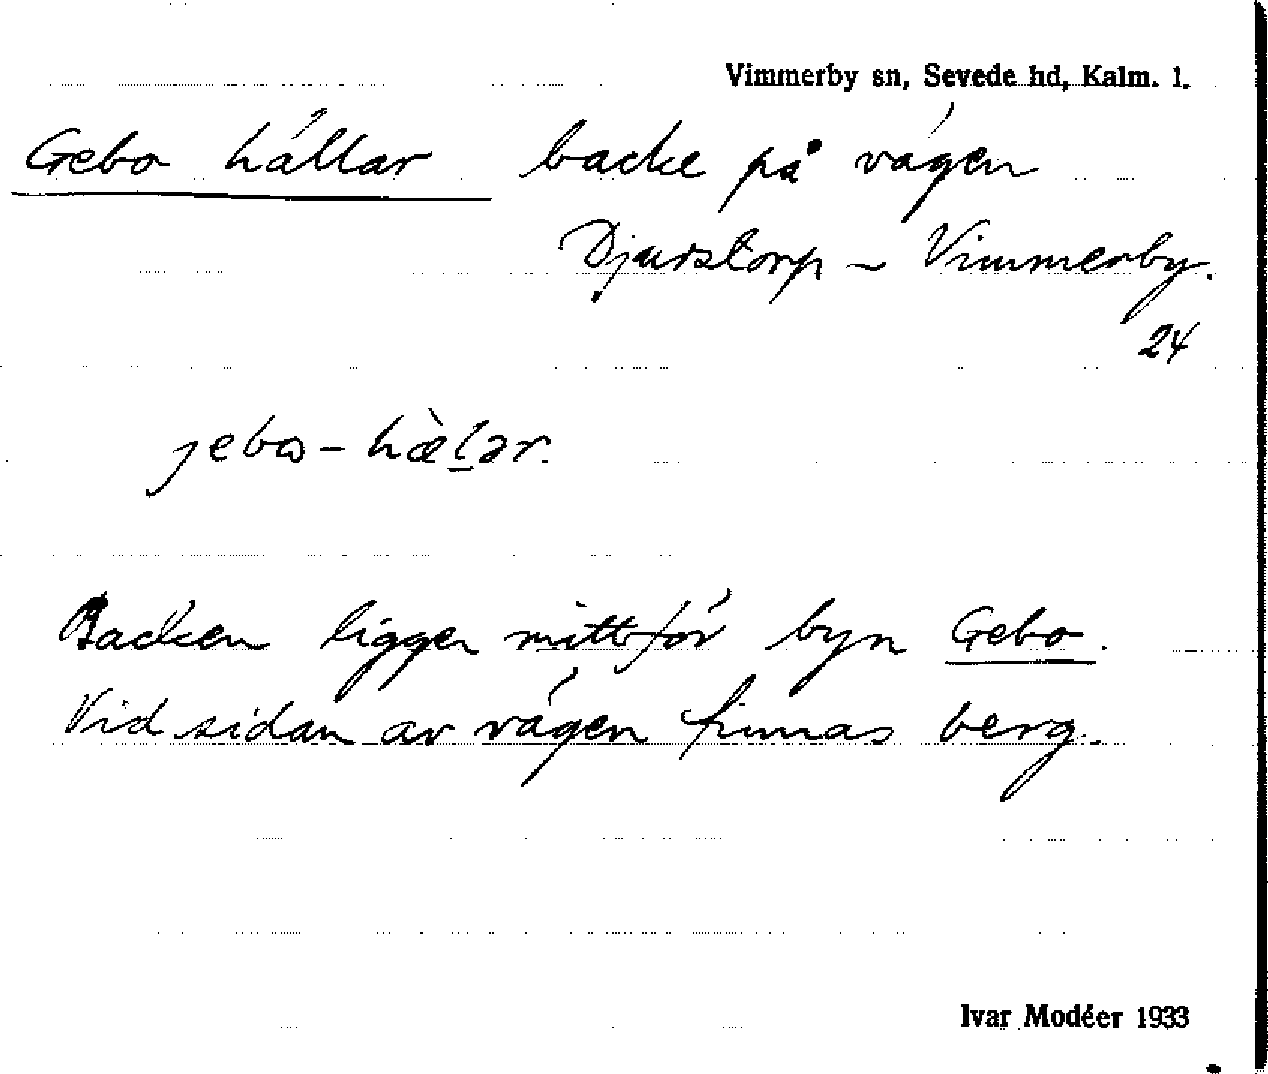 Vimmerby sn, Sevede hd, Kalm. l.
Gebo hällar backe på vägen
Djurstorp - Vimmerby.
24
jebω-hὰ̀lər.
Backen ligger mittför byn Gebo.
Vid sidan av vägen finnas berg.
Ivar Modéer 1933